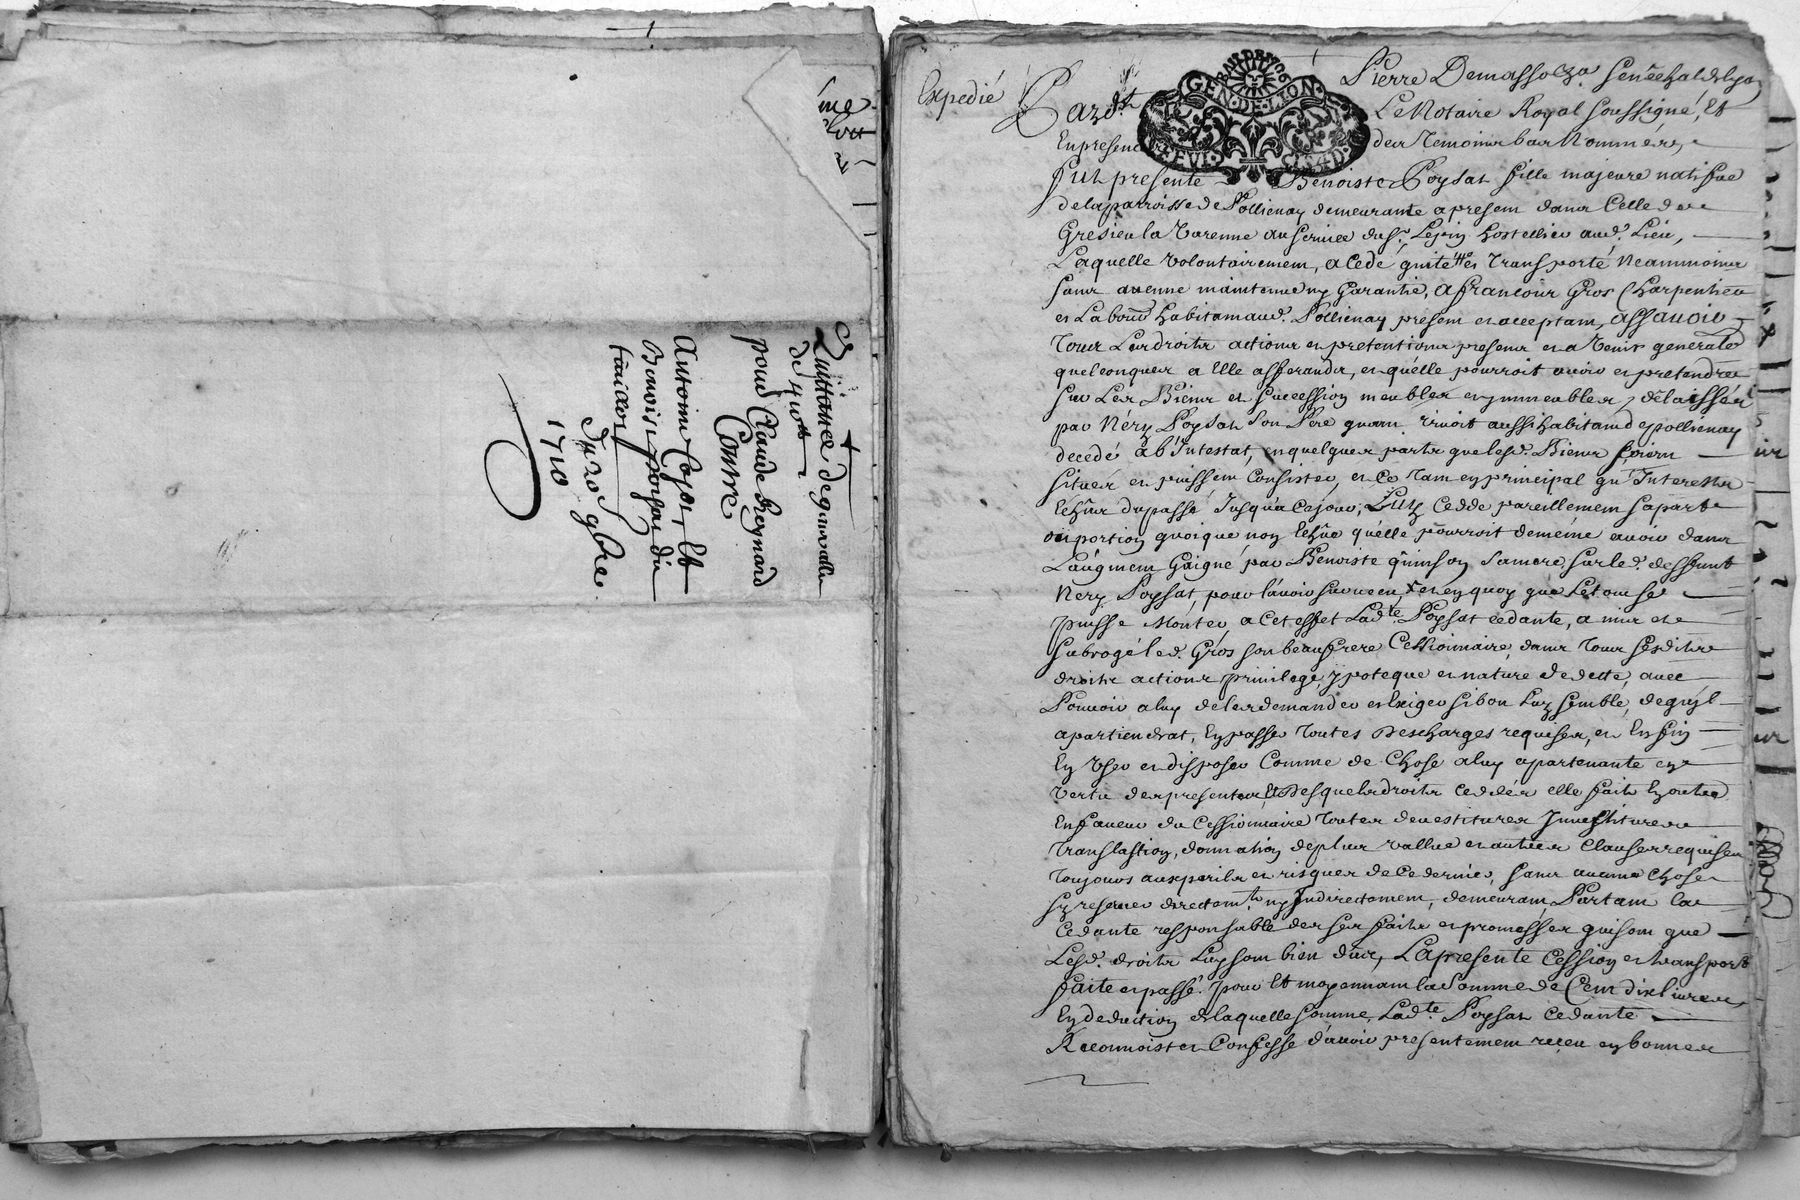 Quittance de generalle
de 410ᵗᵗ
pour Claude Reynard
Contre
Antoine Cajot, Et
Benoist poysat du
20 9bre
1710
Expedié
Pierre Demasso
Senechal de Lyon
Pard.t
GEN·DE·LION·
Le Notaire Royal soussigné, Et
En presence des Temoins bas Nommés,
fut presente Benoiste Poysat fille majeure natifue
de la parroisse de Pollienay demeurante a present dans Celle de
Gresieu la Varenne au seruice du Sr. Lepin hostellier aud. Lieu,
Laquelle volontairement, a Cedé quité et Transporté Neammoins
sans aucune maintenue ny Garantie, A francois Gros Charpentier
et Labour habitant aud. Pollienay present et acceptant, assauoir
Tous Les droits actions et pretentions presens et a Venir generale
quelconques a Elle afferandts, et qu'elle pourroit auoir et pretendre
sur Les Biens et succession meubles et immeubles, délaissés
par Néry Poysat son Pere quam viuoit aussi habitant de pollienay
decedé ab Intestat, en quelques parts que lesd. Biens soient
situés et puissent Consister, et Ce Tant en principal qu'Interests
échus du passé Jusqu'a Ce jour; Luy Cedde pareillement sa part
ou portion quoique non échue qu'elle pourroit de méme auoir dans
L'augment Gaigné par Benoiste quinson sa mere sur led. deffunt
Nery Poysat, pour l'auoir suruecu, et en quoy que Le tout se
puisse Monter, a Cet effet Lad.te Poysat cedante, a mis et
subrogé led. Gros son beau frere Cessionnaire dans Tous sesdits
droits actions priuilege, ypoteque et nature de dette, auec
Pouuoir a luy de les demander et Exiger si bon Luy semble, de qu'il
apartiendrat, En passer Toutes Descharges requises, et Enfin
En User et disposer Comme de Chose a luy apartenante en
Vertu des presentes, Et Desquels droits ceddés elle fait En outre
En faueur du Cessionnaire Toutes deuestitures Inuestitures
Translastion, donnation de plus vallue et autres Clauses requises
Toujours aux perils et risques de Ce dernier, sans aucune Chose
s'y reseruer directemt. ny Indirectement, demeurant Partant la
Cedante responsable de ses faits et promesses qui sont que
Lesd. droits Luy sont bien dus, La presente Cession et transport
faite et passé pour Et moyennant la somme de Cent dix liures
En deduction de laquelle somme, Lad.te Poysat cedante
Reconnoist et Confesse d'auoir presentement reçeu en bonnes